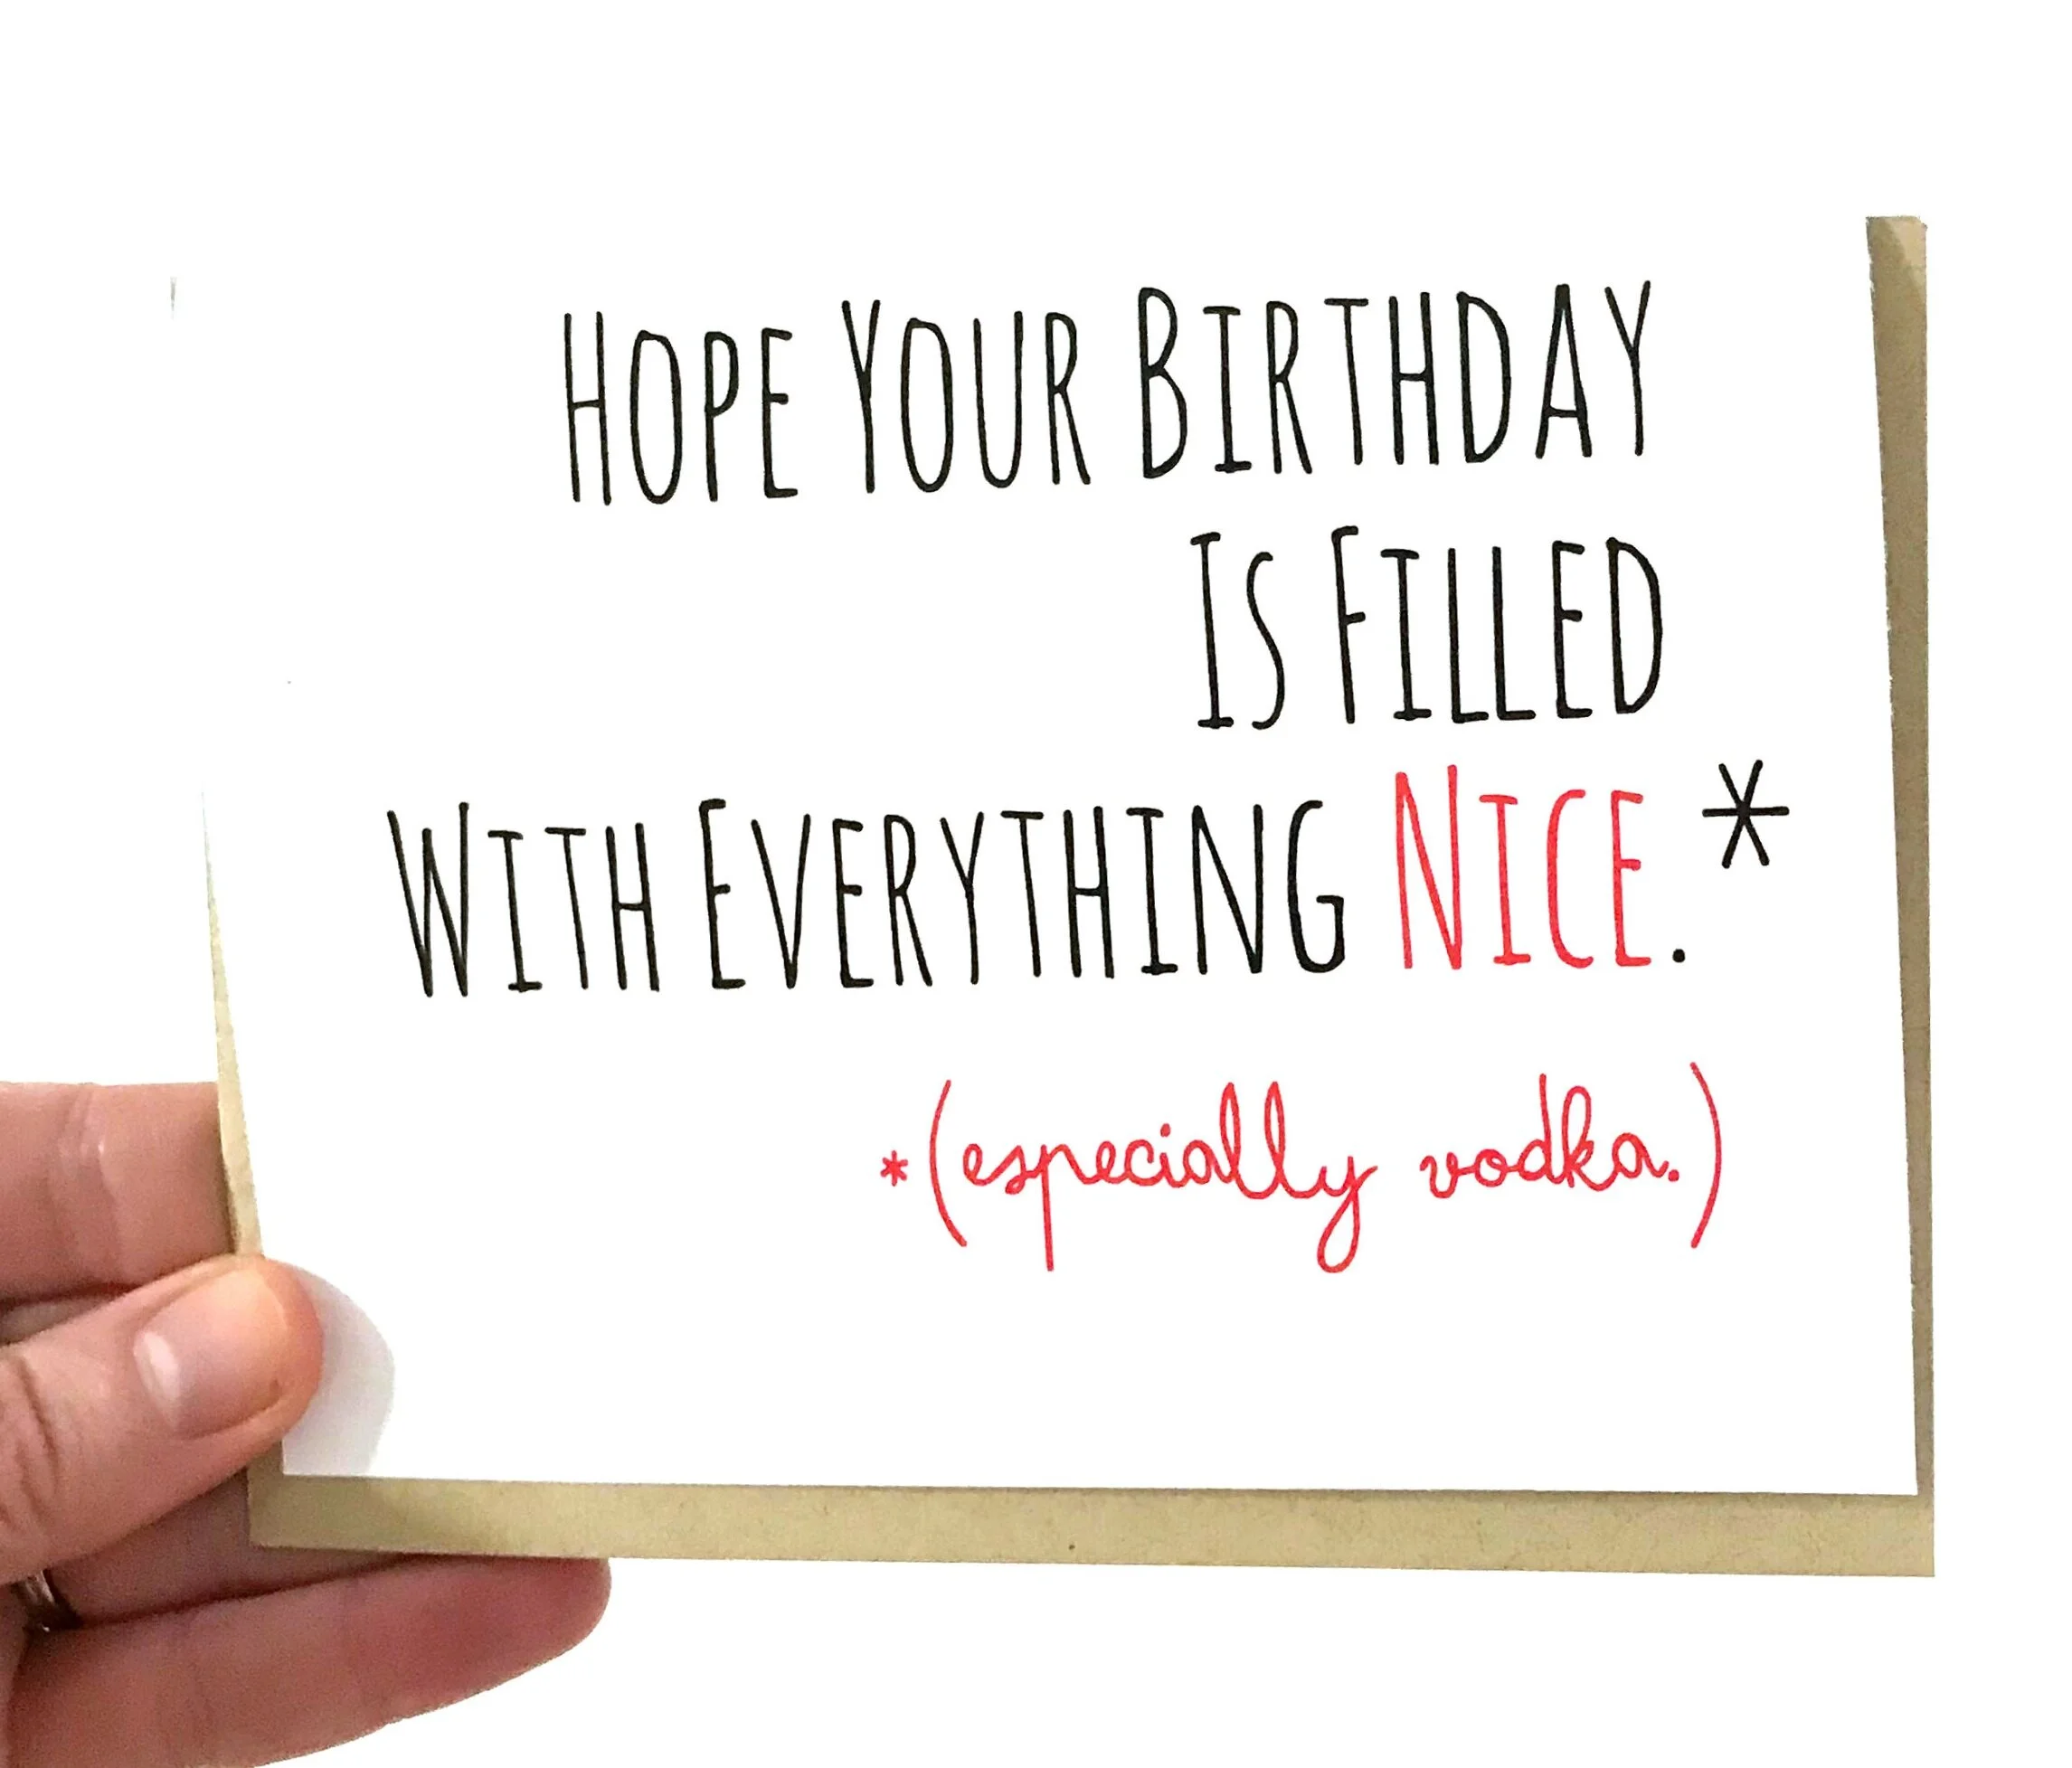 Hope Your Birthday
Is Filled
With Everything Nice.*
*(especially vodka.)